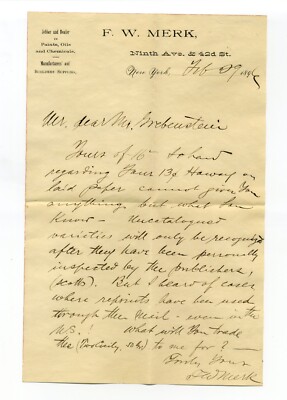 Jobber and Dealer
in
Paints, Oils
and Chemicals,
Manufacturers' and
Builders' Supplies.
F. W. MERK,
Ninth Ave. & 42d St.
New York, Feb 29 189
My dear Mr.
Yours of 15 to hand
regarding Haway on
laid paper cannot give you
anything but what you
know – Uncatalogued
varieties will only be recognized
after they have been personally
inspected by the publishers,
(Scotts). But I heard of cases
where reprints have been used
through the Mail – even in the
U.S.! What will you trade
the to me for? –
Truly Yours
F W Merk